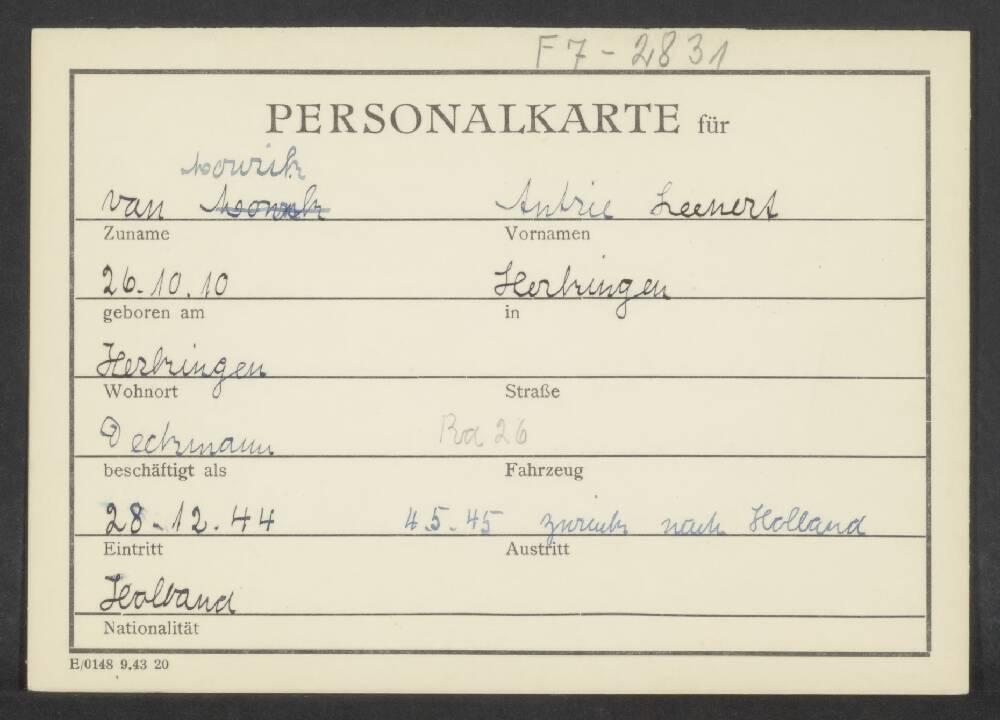 F7-2831
PERSONALKARTE für
van Leenert
Zuname Vornamen
26.10.10
geboren am in
Wohnort Straße
Deckmann Ra 26
beschäftigt als Fahrzeug
28.12.44 4.5.45 zurück nach Holland
Eintritt Austritt
Holland
Nationalität
E/0148 9.43 20